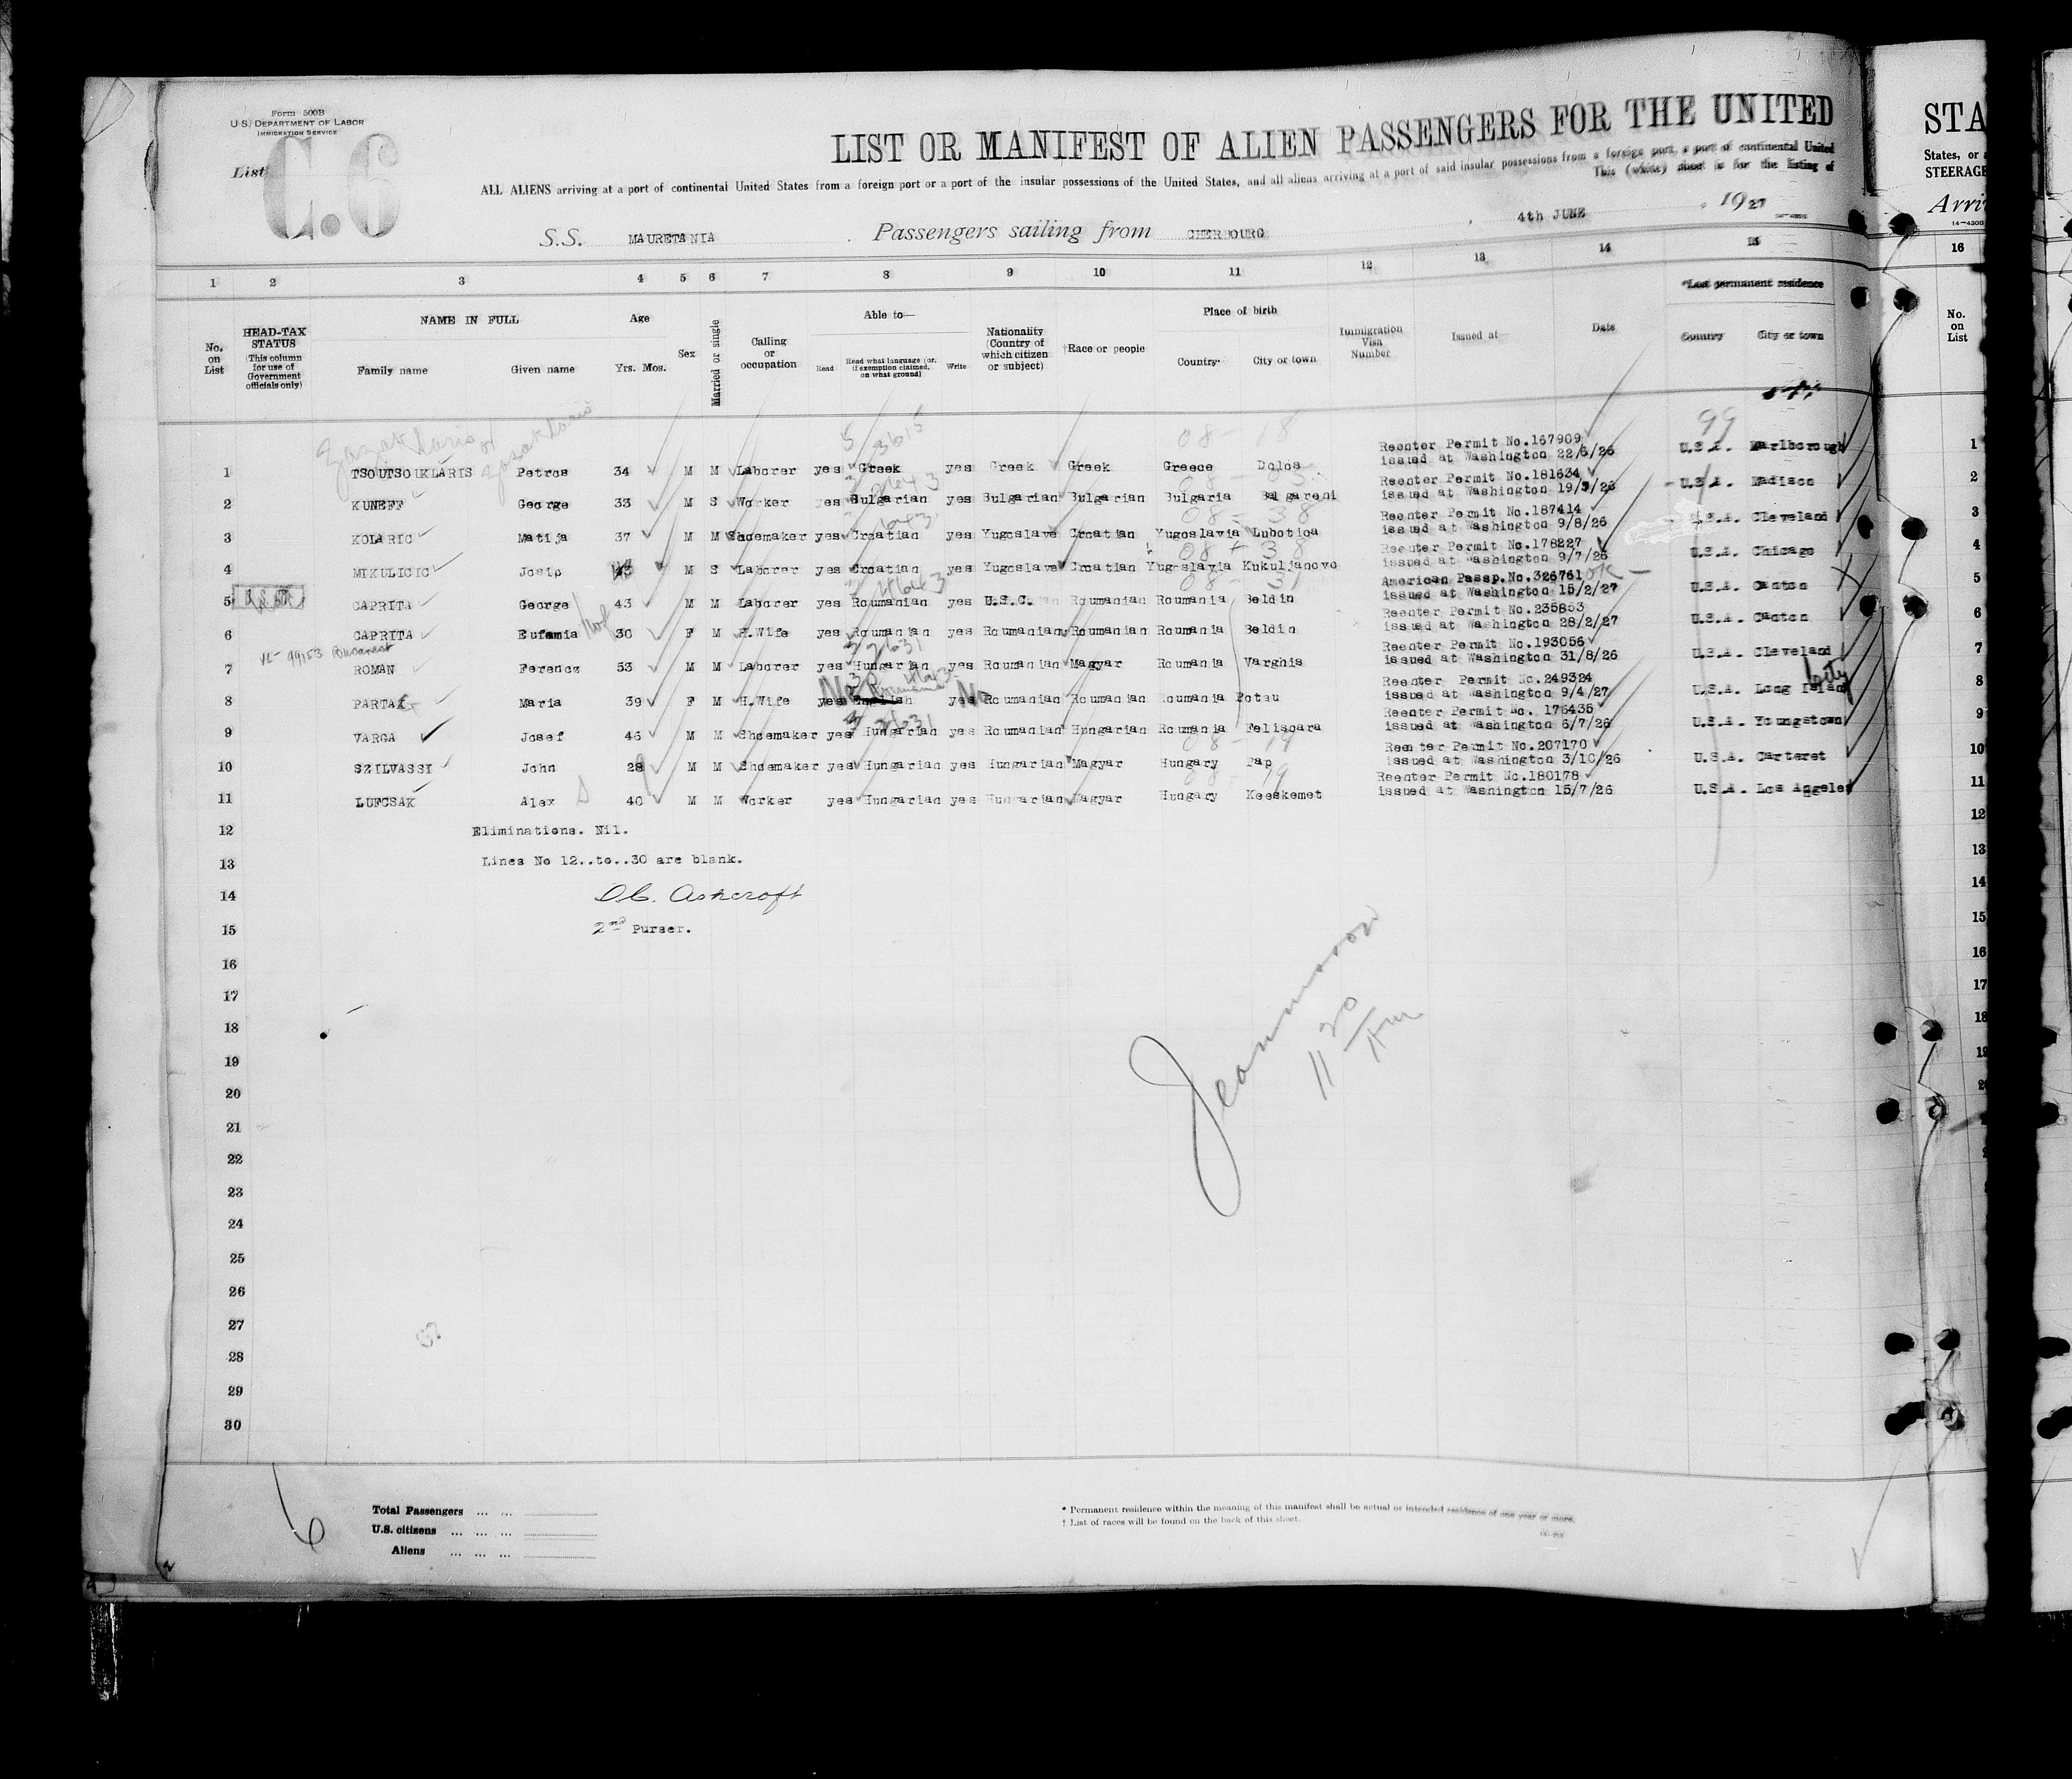 Form 500B
U.S. DEPARTMENT OF LABOR
IMMIGRATION SERVICE
List C.6
LIST OR MANIFEST OF ALIEN PASSENGERS FOR THE UNITED
ALL ALIENS arriving at a port of continental United States from a foreign port or a port of the insular possessions of the United States, and all aliens arriving at a port of said insular possessions from a foreign port, a port of continental United
This (white) sheet is for the listing of
S.S. MAURETANIA Passengers sailing from CHERBOURG, 4th JUNE, 1927
1 2 3 4 5 6 7 8 9 10 11 12 13 14 15
No. on List
HEAD-TAX STATUS (This column for use of Government officials only)
NAME IN FULL Family name Given name
Age Yrs. Mos.
Sex
Married or single
Calling or occupation
Able to— Read Read what language (or, if exemption claimed, on what ground) Write
Nationality (Country of which citizen or subject)
†Race or people
Place of birth Country City or town
Immigration Visa Number
Issued at
Date
*Last permanent residence Country City or town
99
1 TSOUTSOUKLARIS Petros 34 M M Laborer yes Greek yes Greek Greek Greece Dolos Reenter Permit No.167909 issued at Washington 22/6/26 U.S.A. Marlborough 1
2 KUNEFF George 33 M S Worker yes Bulgarian yes Bulgarian Bulgarian Bulgaria Bulgareni Reenter Permit No.181634 issued at Washington 19/9/26 U.S.A. Madison 2
3 KOLARIC Matija 37 M M Shoemaker yes Croatian yes Yugoslave Croatian Yugoslavia Lubotica Reenter Permit No.187414 issued at Washington 9/8/26 U.S.A. Cleveland 3
4 MIKULICIC Josip M S Laborer yes Croatian yes Yugoslave Croatian Yugoslavia Kukuljanovo Reenter Permit No.178227 issued at Washington 9/7/26 U.S.A. Chicago 4
5 CAPRITA George 43 M M Laborer yes Roumanian yes U.S.C. Roumanian Roumania Beldin American Passp.No.326761 OK issued at Washington 15/2/27 U.S.A. Canton 5
6 CAPRITA Eufemia 30 F M H.Wife yes Roumanian yes Roumanian Roumanian Roumania Beldin Reenter Permit No.235853 issued at Washington 28/2/27 U.S.A. Canton 6
99153 Bucarest
7 ROMAN Ferencz 53 M M Laborer yes Hungarian yes Roumanian Magyar Roumania Varghis Reenter Permit No.193056 issued at Washington 31/8/26 U.S.A. Cleveland 7
8 PARTA Maria 39 F M H.Wife yes No English Roumanian yes No Roumanian Roumanian Roumania Potau Reenter Permit No.249324 issued at Washington 9/4/27 U.S.A. Long Island City 8
9 VARGA Josef 46 M M Shoemaker yes Hungarian yes Roumanian Hungarian Roumania Felisoara Reenter Permit No. 176435 issued at Washington 6/7/26 U.S.A. Youngstown 9
10 SZILVASSI John 28 M M Shoemaker yes Hungarian yes Hungarian Magyar Hungary Pap Reenter Permit No.207170 issued at Washington 3/10/26 U.S.A. Carteret 10
11 LUFCSAK Alex 40 M M Worker yes Hungarian yes Hungarian Magyar Hungary Keeskemet Reenter Permit No.180178 issued at Washington 15/7/26 U.S.A. Los Angeles 11
12 Eliminations. Nil. 12
13 Lines No 12..to..30 are blank. 13
14 Ashcroft 14
15 2nd Purser. 15
16
17
18
19
20
21
22
23
24
25
26
27
28
29
30
6
Total Passengers
U.S. citizens
Aliens
* Permanent residence within the meaning of this manifest shall be actual or intended residence of one year or more.
† List of races will be found on the back of this sheet.
STA
States, or
STEERAGE
Arri
16
No. on List